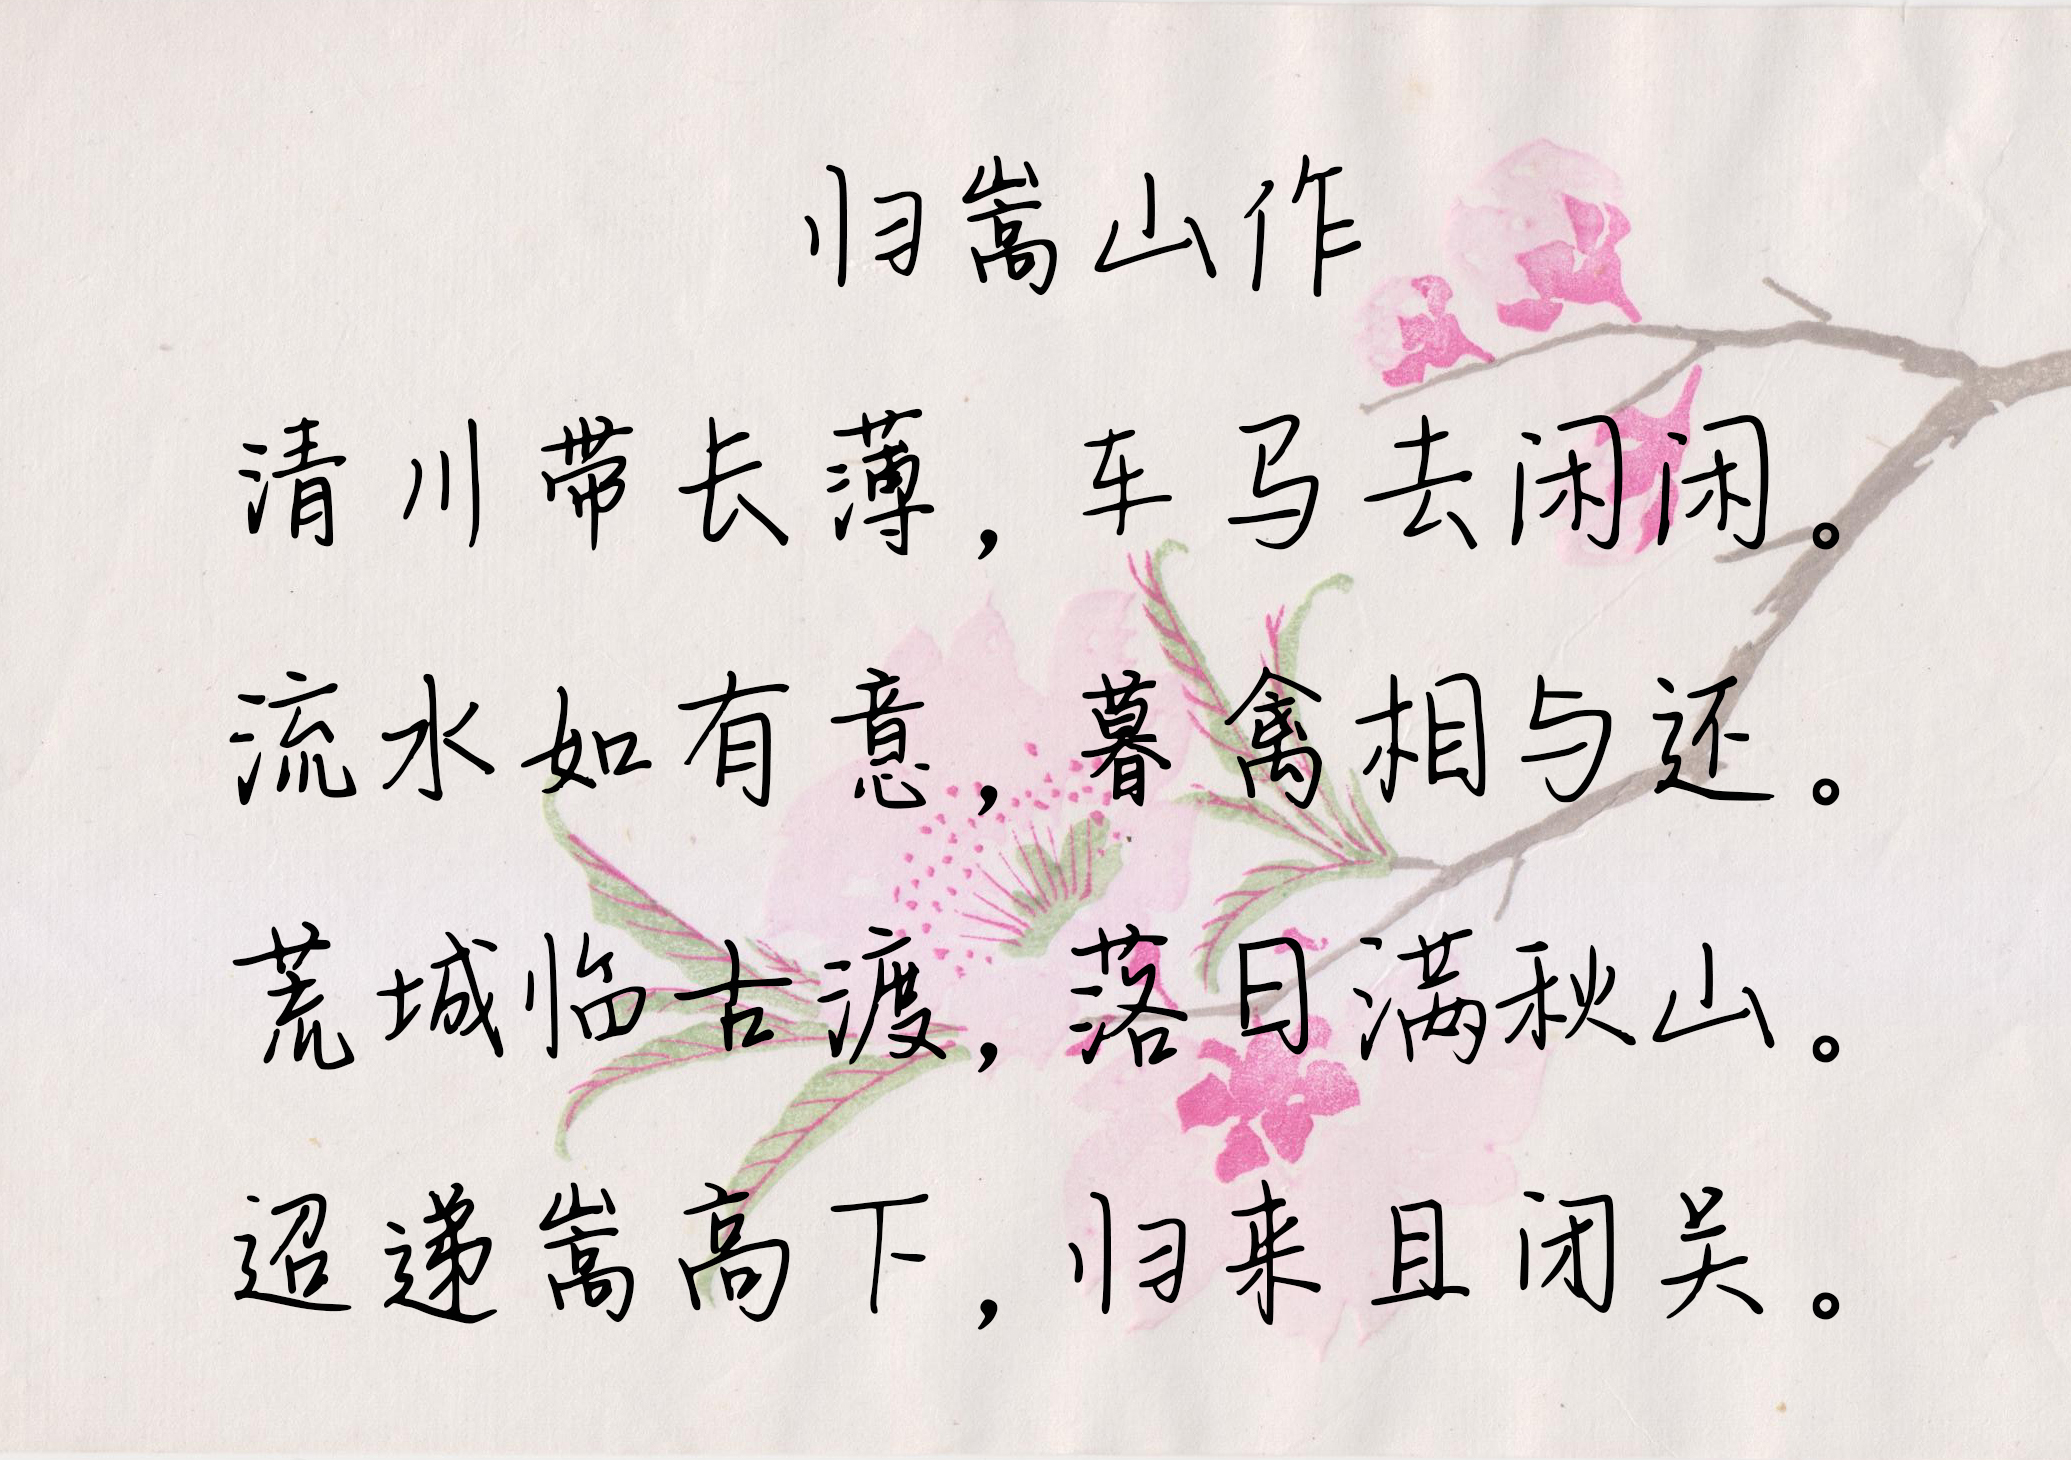 归嵩山作
清川带长薄，车马去闲闲。
流水如有意，暮禽相与还。
荒城临古渡，落日满秋山。
迢递嵩高下，归来且闭关。